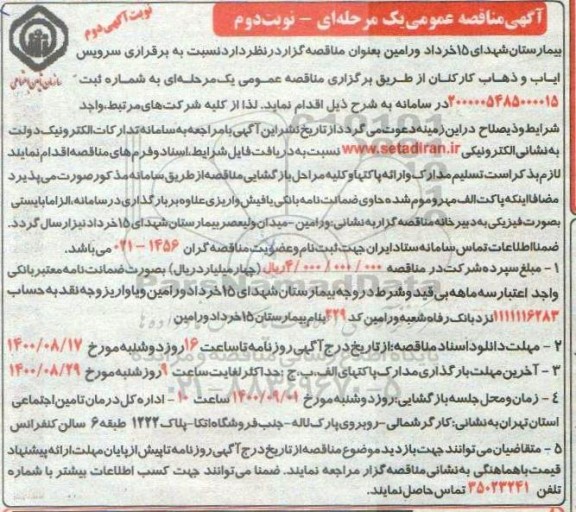 آگهی مناقصه عمومی یک مرحله‌ای - نوبت دوم
نوبت آگهی دوم
سازمان تامین اجتماعی
بیمارستان شهدای ۱۵ خرداد ورامین بعنوان مناقصه گزار در نظر دارد نسبت به برقراری سرویس
ایاب و ذهاب کارکنان از طریق برگزاری مناقصه عمومی یک مرحله‌ای به شماره ثبت
۲۰۰۰۰۰۵۴۸۵۰۰۰۰۱۵ در سامانه به شرح ذیل اقدام نماید. لذا از کلیه شرکت‌های مرتبط، واجد
شرایط و ذیصلاح در این زمینه دعوت می گردد از تاریخ نشر این آگهی با مراجعه به سامانه تدارکات الکترونیک دولت
به نشانی الکترونیکی www.setadiran.ir نسبت به دریافت فایل شرایط، اسناد و فرم های مناقصه اقدام نمایند
لازم بذکر است تسلیم مدارک و ارائه پاکتها و کلیه مراحل بازگشایی مناقصه از طریق سامانه مذکور صورت می پذیرد
مضافا اینکه پاکت الف مهر و موم شده حاوی ضمانت نامه بانکی یا فیش واریزی علاوه بر بارگذاری در سامانه، الزاما بایستی
بصورت فیزیکی به دبیرخانه مناقصه گزار به نشانی: ورامین - میدان ولیعصر بیمارستان شهدای ۱۵ خرداد نیز ارسال گردد.
ضمنا اطلاعات تماس سامانه ستاد ایران جهت ثبت نام و عضویت مناقصه گران ۱۴۵۶-۰۲۱ می باشد.
۱ - مبلغ سپرده شرکت در مناقصه ۴/۰۰۰/۰۰۰/۰۰۰ ریال (چهار میلیارد ریال) بصورت ضمانت نامه معتبر بانکی
واجد اعتبار سه ماهه بی قید و شرط در وجه بیمارستان شهدای ۱۵ خرداد ورامین و یا واریز وجه نقد به حساب
۱۱۱۱۱۱۶۲۸۳ نزد بانک رفاه شعبه ورامین کد ۴۲۹ بنام بیمارستان ۱۵ خرداد ورامین
۲ - مهلت دانلود اسناد مناقصه: از تاریخ درج آگهی روزنامه تا ساعت ۱۶ روز دوشنبه مورخ ۱۴۰۰/۰۸/۱۷
۳ - آخرین مهلت بارگذاری مدارک پاکتهای الف، ب، ج: حداکثر لغایت ساعت ۹ روز شنبه مورخ ۱۴۰۰/۰۸/۲۹
۴ - زمان و محل جلسه بازگشایی: روز دوشنبه مورخ ۱۴۰۰/۰۹/۰۱ ساعت ۱۰ - اداره کل درمان تامین اجتماعی
استان تهران به نشانی: کارگر شمالی - روبروی پارک لاله - جنب فروشگاه اتکا - پلاک ۱۲۲۲ طبقه ۶ سالن کنفرانس
۵ - متقاضیان می توانند جهت بازدید موضوع مناقصه از تاریخ درج آگهی روزنامه تا پیش از پایان مهلت ارائه پیشنهاد
قیمت با هماهنگی به نشانی مناقصه گزار مراجعه نمایند. ضمنا می توانند جهت کسب اطلاعات بیشتر با شماره
تلفن ۳۵۰۲۳۲۴۱ تماس حاصل نمایند.
ParsNamadData
۰۲۱-۸۸۳۴۹۶۷۰-۵